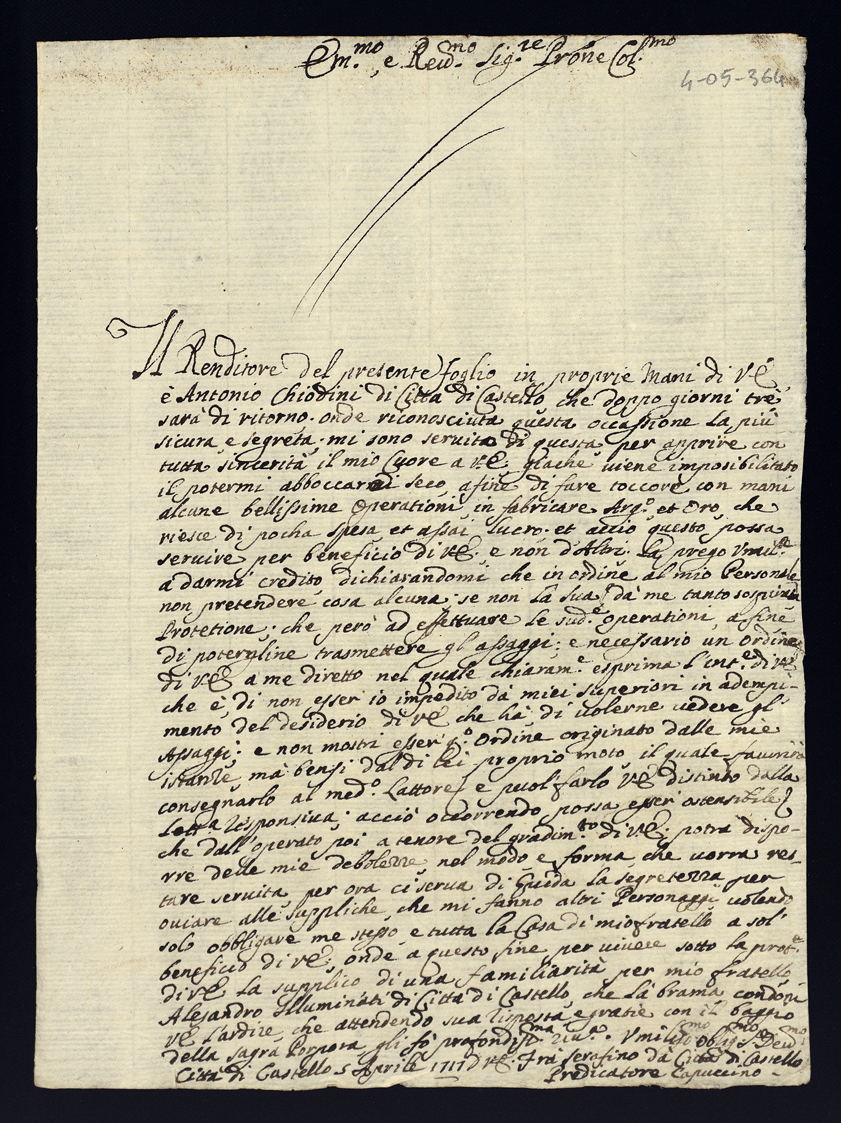 Em.mo e Reud.mo Sig.re Prōne Col.mo
4-05-364
Il Renditore del presente foglio in proprie Mani di VE
è Antonio Chiodini di Città di Castello che doppo giorni trè
sarà di ritorno. onde riconosciuta questa occassione la più
sicura e segreta. mi sono seruita di questa per apprire con
tutta sincerità il mio Cuore a VE; giache uiene imposibilitato
il potermi abboccarmi seco, a fine di fare toccore con mani
alcune bellissime Operationi, in fabricare Arg.o et Oro, che
riesce di pocha spesa et assai lucro. et acciò questo possa
seruire per beneficio di VE. e non d'Altri. La prego
a darmi credito dichiarandomi che in ordine al mio Personale
non pretendere cosa alcuna; se non la sua da me tanto sospirata
Protetione; che però ad effettuare le sud.e operationi, a fine
di poternline trasmettere gl'assaggi; e necessario un Ordine
di VE a me diretto nel quale chiaram.e esprima l'Int.e di VE
che è, di non esser io impedito da miei superiori in adempi-
mento del desiderio di VE che hà, di uolerne uedere gl'
Assaggi; e non mostri esser q.o Ordine originato dalle mie
istanze, mà bensi dal di lei proprio moto il quale fauorirà
consegnarlo al med.o Lattore, e puol farlo VE distinto dalla
lettra responsiua; acciò occorrendo possa esser ostensibile
che dall'operato poi a tenore del gradim.to di VE; potrà dispo-
rre delle mie debolezze nel modo e forma, che uorrà res-
tare seruita per ora ci serua di Guida la segretezza per
ouiare alle suppliche, che mi fanno altri Personaggi uolendo
solo obbligare me stesso e tutta la Casa di mio fratello a sol'
beneficio di VE; onde a questo fine per viuere sotto la prot.e
di VE la supplico di una familiarità per mio fratello
Alesandro Illuminati di Città di Castello, che la brama condoni
VE l'ardire, che attendendo sua risposta e gratie con il baggio
della sagra Porpora gli fò profondiss.ma riu.a. Vmiliss.mo Oblig.mo S. Deu.mo
Città di Castello 5 Aprile 1717 D VE. Fra Serafino da Città di Castello
Predicatore Capuccino -